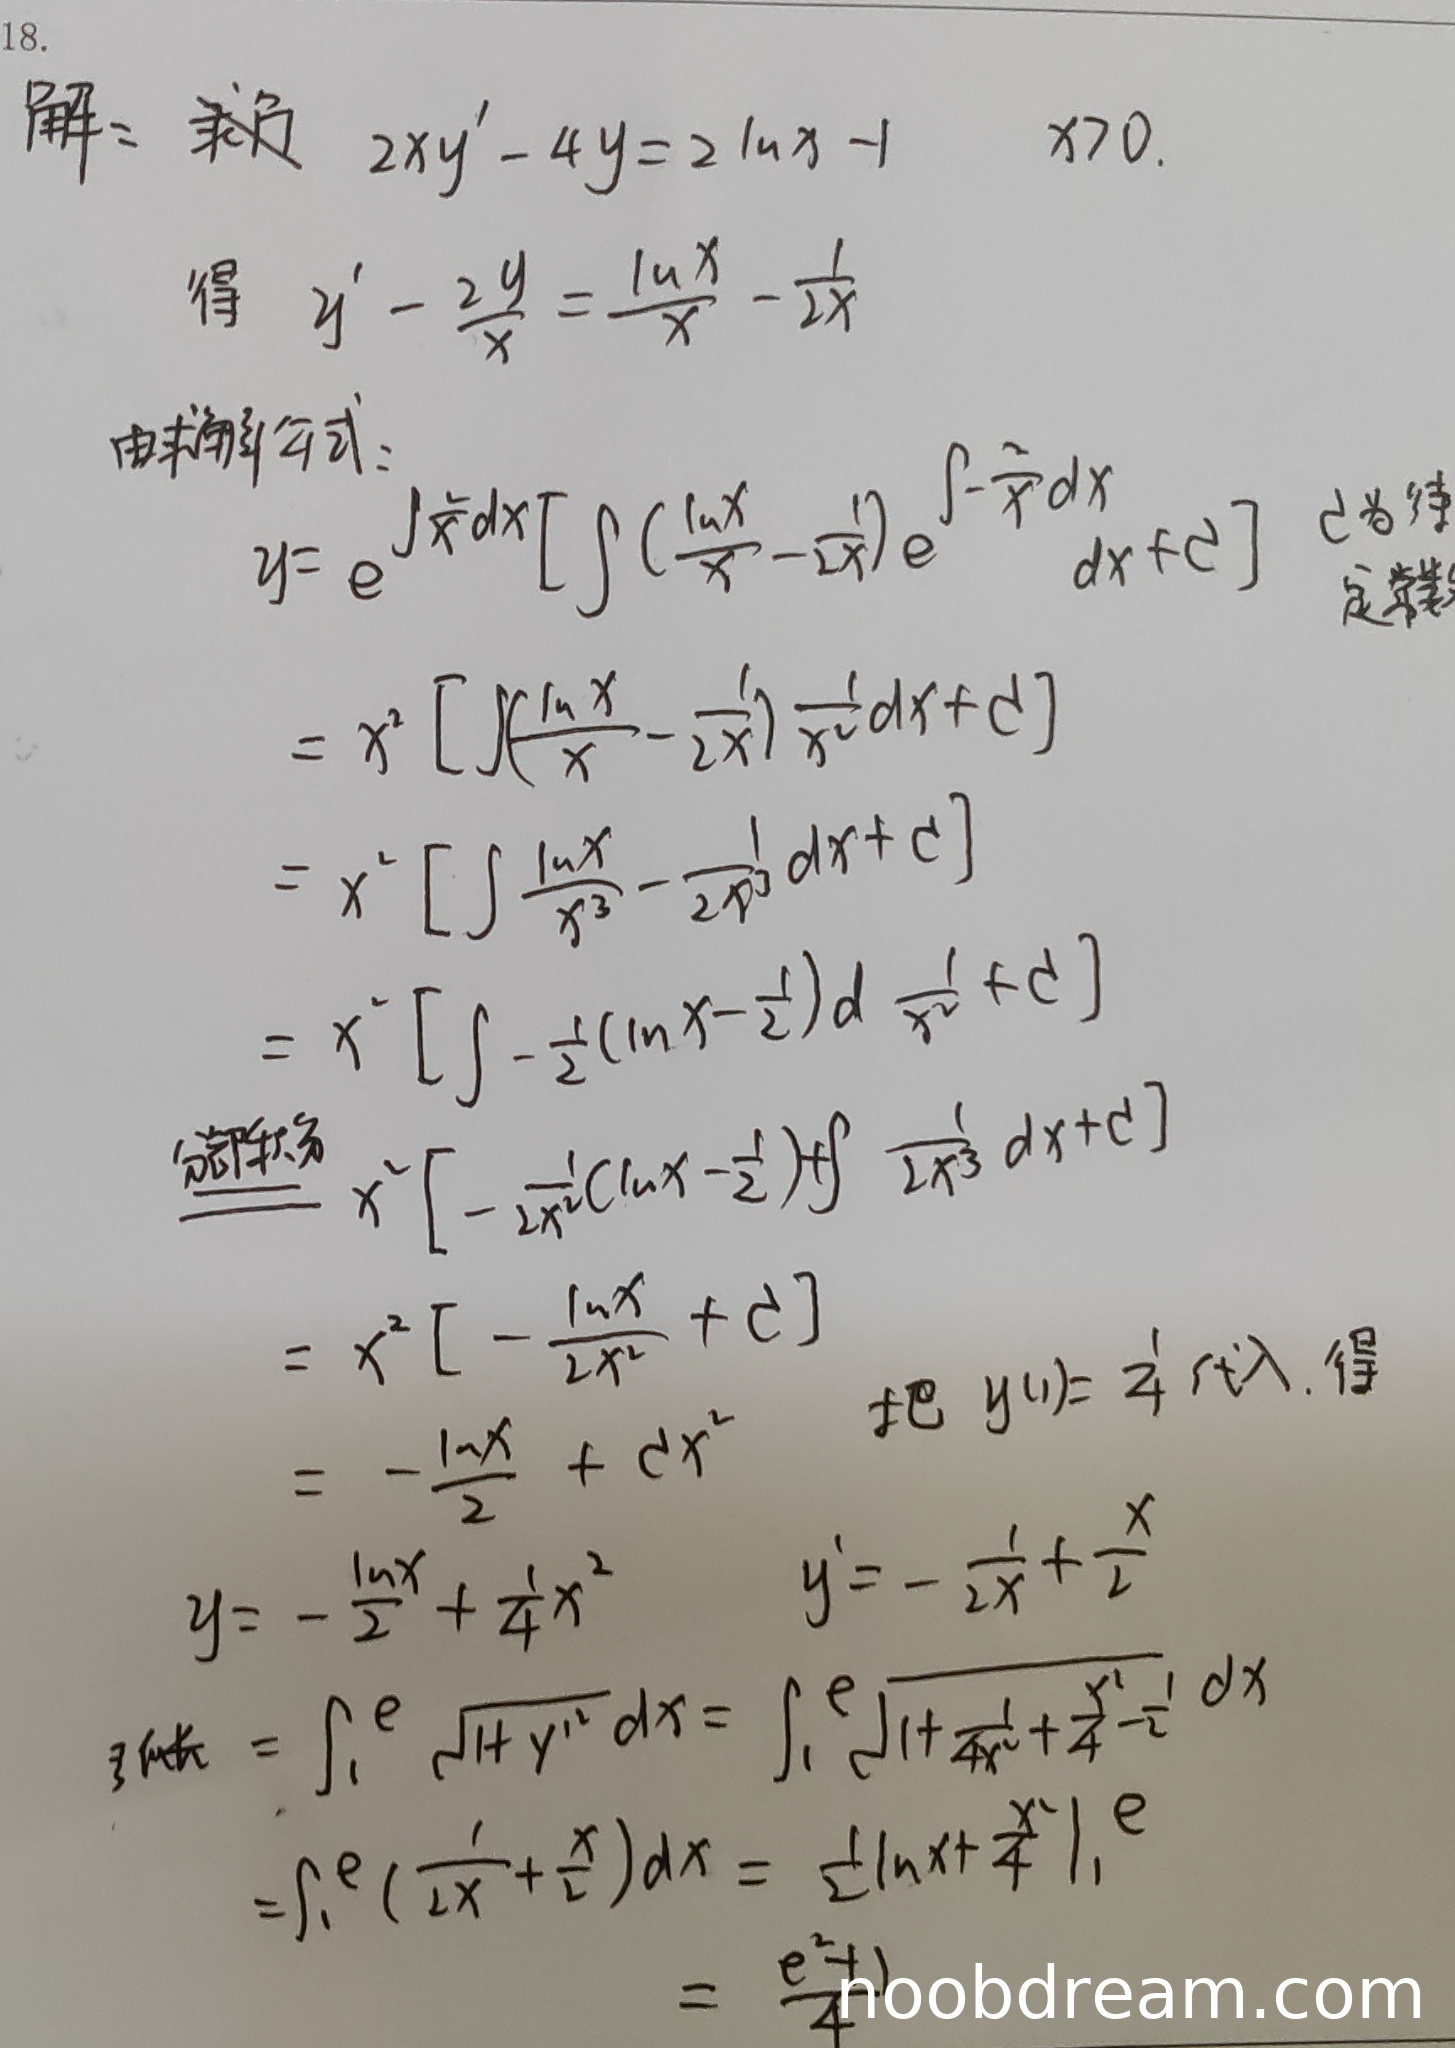 18.
解: 2xy' - 4y = 2 ln x - 1   x>0.
得 y' - 2y/x = ln x/x - 1/2x
由求解公式:
y = e^{∫2/x dx} [∫(ln x/x - 1/2x) e^{∫-2/x dx} dx + C] C为待定常数
= x² [∫(ln x/x - 1/2x) 1/x² dx + C]
= x² [∫ ln x/x³ - 1/2x³ dx + C]
= x² [∫ -1/2 (ln x - 1/2) d 1/x² + C]
分部积分 x² [-1/2x² (ln x - 1/2) + ∫ 1/2x³ dx + C]
= x² [-ln x/2x² + C]
= -ln x/2 + Cx² 把 y(1) = 1/4 代入. 得
y = -ln x/2 + 1/4 x²   y' = -1/2x + x/2
弧长 = ∫₁^e √(1+y'²) dx = ∫₁^e √(1 + 1/4x² + x²/4 - 1/2) dx
= ∫₁^e (1/2x + x/2) dx = 1/2 ln x + x²/4 |₁^e
= e²+1/4
noobdream.com